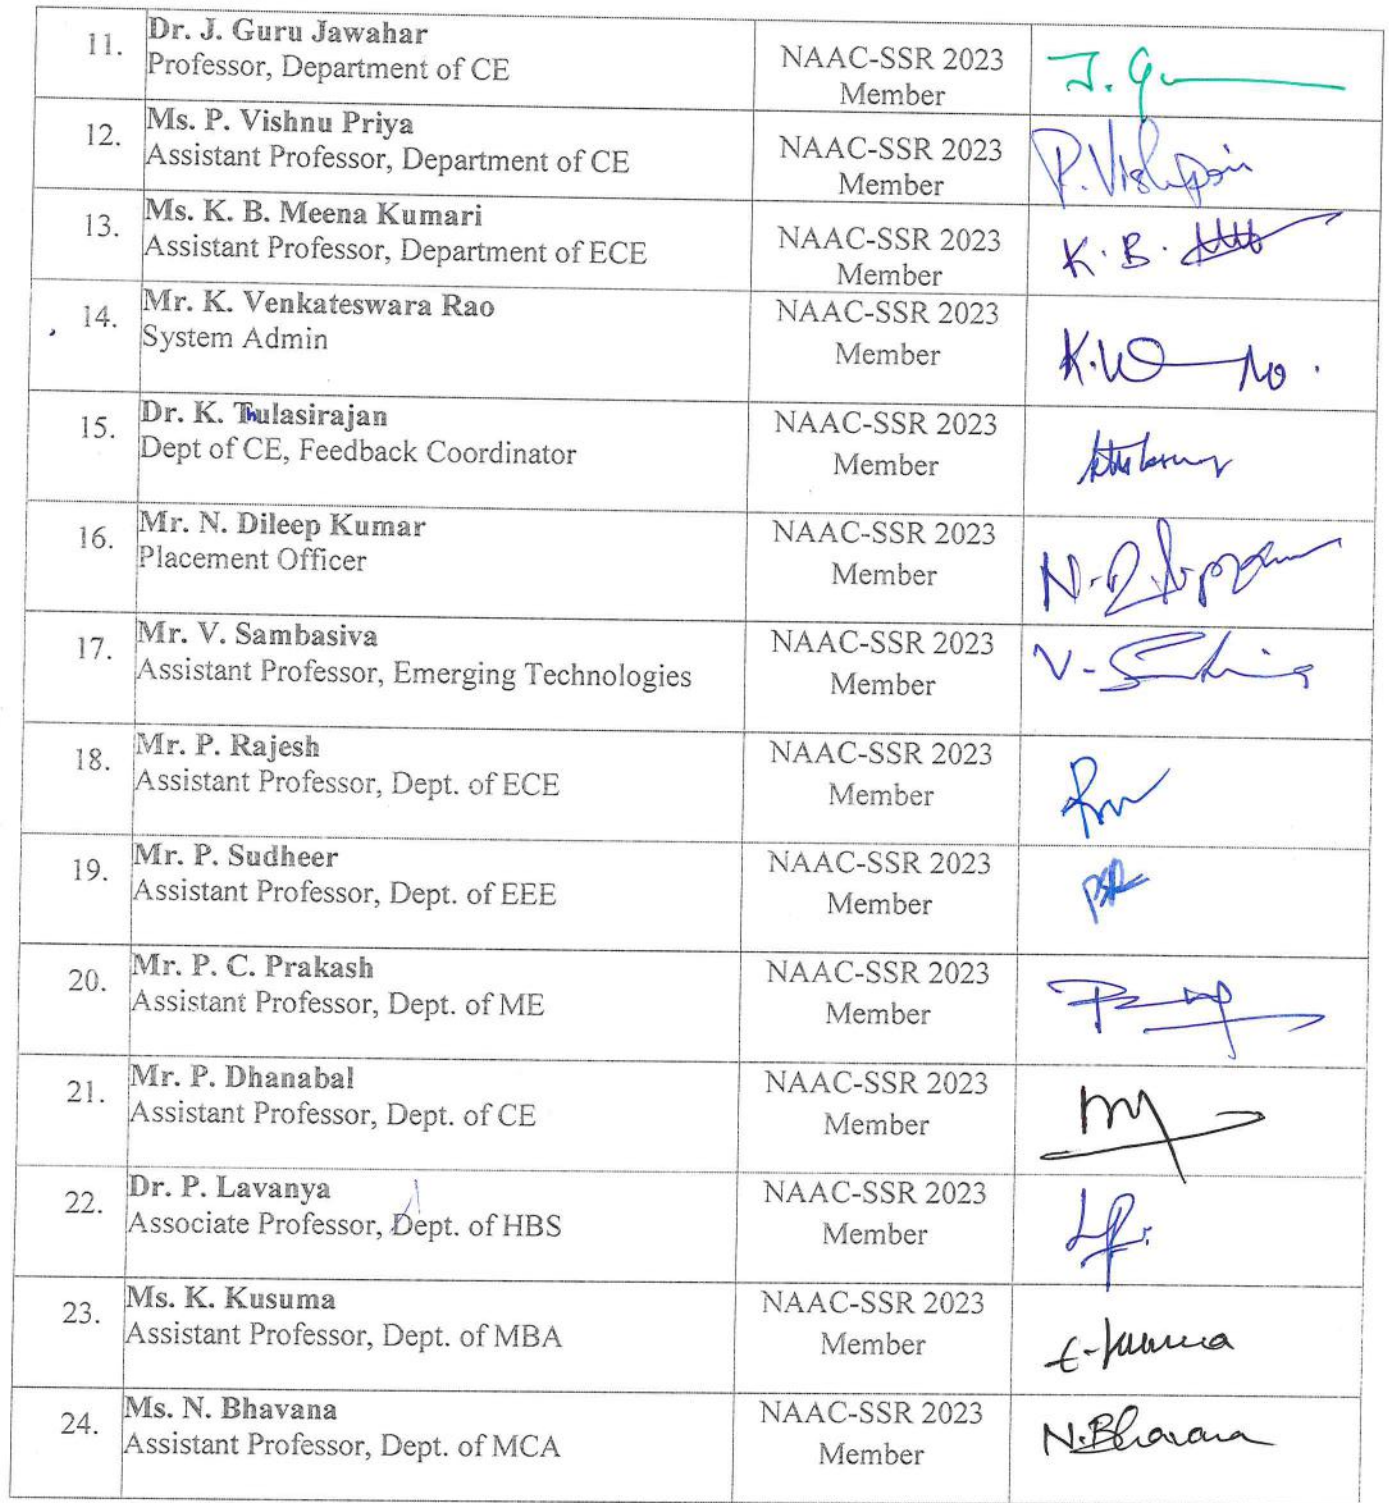 11. Dr. J. Guru Jawahar
Professor, Department of CE
NAAC-SSR 2023
Member
J. Gu
12. Ms. P. Vishnu Priya
Assistant Professor, Department of CE
NAAC-SSR 2023
Member
13. Ms. K. B. Meena Kumari
Assistant Professor, Department of ECE
NAAC-SSR 2023
Member
K. B.
14. Mr. K. Venkateswara Rao
System Admin
NAAC-SSR 2023
Member
15. Dr. K. Thulasirajan
Dept of CE, Feedback Coordinator
NAAC-SSR 2023
Member
16. Mr. N. Dileep Kumar
Placement Officer
NAAC-SSR 2023
Member
17. Mr. V. Sambasiva
Assistant Professor, Emerging Technologies
NAAC-SSR 2023
Member
18. Mr. P. Rajesh
Assistant Professor, Dept. of ECE
NAAC-SSR 2023
Member
19. Mr. P. Sudheer
Assistant Professor, Dept. of EEE
NAAC-SSR 2023
Member
20. Mr. P. C. Prakash
Assistant Professor, Dept. of ME
NAAC-SSR 2023
Member
21. Mr. P. Dhanabal
Assistant Professor, Dept. of CE
NAAC-SSR 2023
Member
22. Dr. P. Lavanya
Associate Professor, Dept. of HBS
NAAC-SSR 2023
Member
23. Ms. K. Kusuma
Assistant Professor, Dept. of MBA
NAAC-SSR 2023
Member
24. Ms. N. Bhavana
Assistant Professor, Dept. of MCA
NAAC-SSR 2023
Member
N. Bhavana